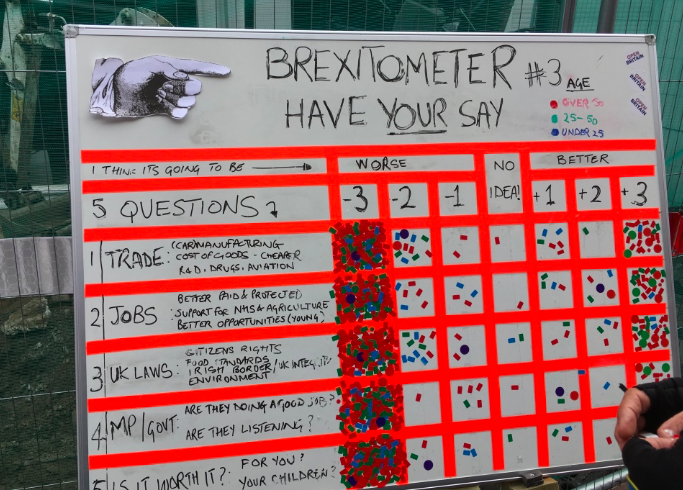 BREXITOMETER #3
HAVE YOUR SAY
AGE
OVER 50
25-50
UNDER 25
OPEN BRITAIN
OPEN BRITAIN
OPEN BRITAIN
I THINK IT'S GOING TO BE → WORSE NO IDEA! BETTER
5 QUESTIONS -3 -2 -1 +1 +2 +3
1 TRADE: (CAR) MANUFACTURING
COST OF GOODS - CHEAPER
R&D, DRUGS, AVIATION
2 JOBS: BETTER PAID & PROTECTED
SUPPORT FOR NHS & AGRICULTURE
BETTER OPPORTUNITIES (YOUNG)
3 UK LAWS: CITIZENS RIGHTS
FOOD STANDARDS
IRISH BORDER/UK
ENVIRONMENT
4 MP/GOVT: ARE THEY DOING A GOOD JOB?
ARE THEY LISTENING?
5 IS IT WORTH IT?: FOR YOU?
YOUR CHILDREN?